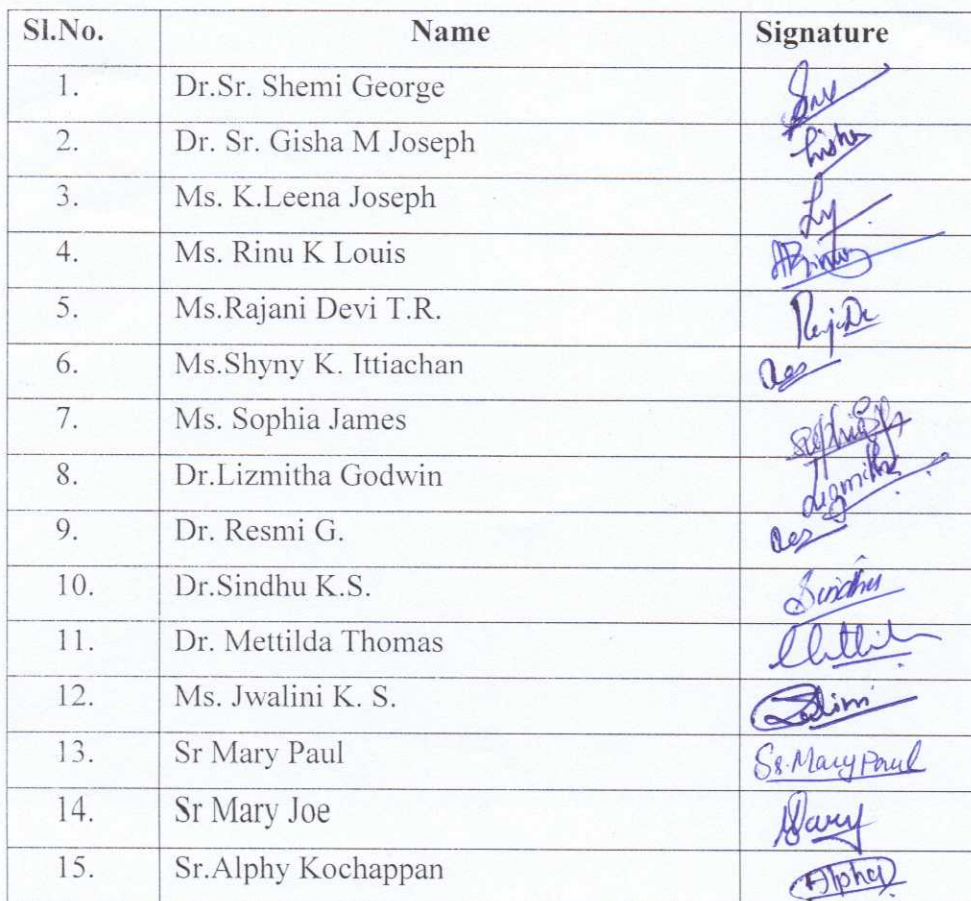 Sl.No. Name Signature
1. Dr.Sr. Shemi George
2. Dr. Sr. Gisha M Joseph
3. Ms. K.Leena Joseph
4. Ms. Rinu K Louis
5. Ms.Rajani Devi T.R.
6. Ms.Shyny K. Ittiachan
7. Ms. Sophia James
8. Dr.Lizmitha Godwin
9. Dr. Resmi G.
10. Dr.Sindhu K.S. Sindhu
11. Dr. Mettilda Thomas
12. Ms. Jwalini K. S.
13. Sr Mary Paul Sr. Mary Paul
14. Sr Mary Joe Mary
15. Sr.Alphy Kochappan Alphy